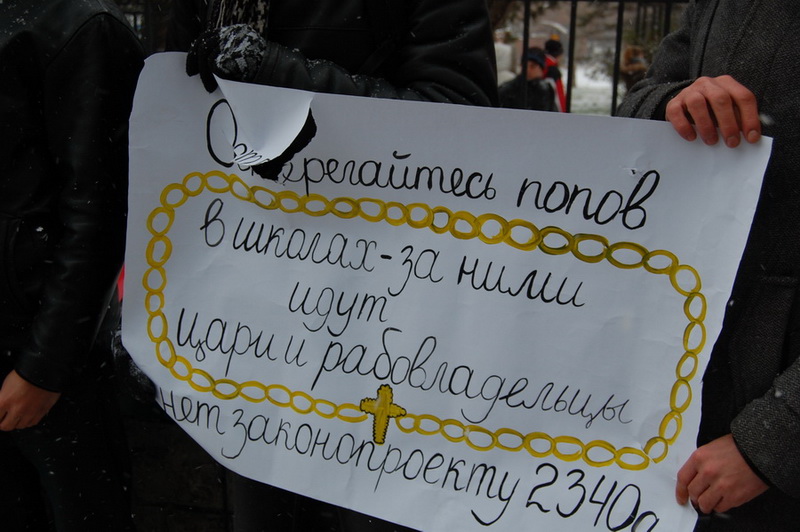 Остерегайтесь попов
в школах - за ними
идут
цари и рабовладельцы
нет законопроекту 2340